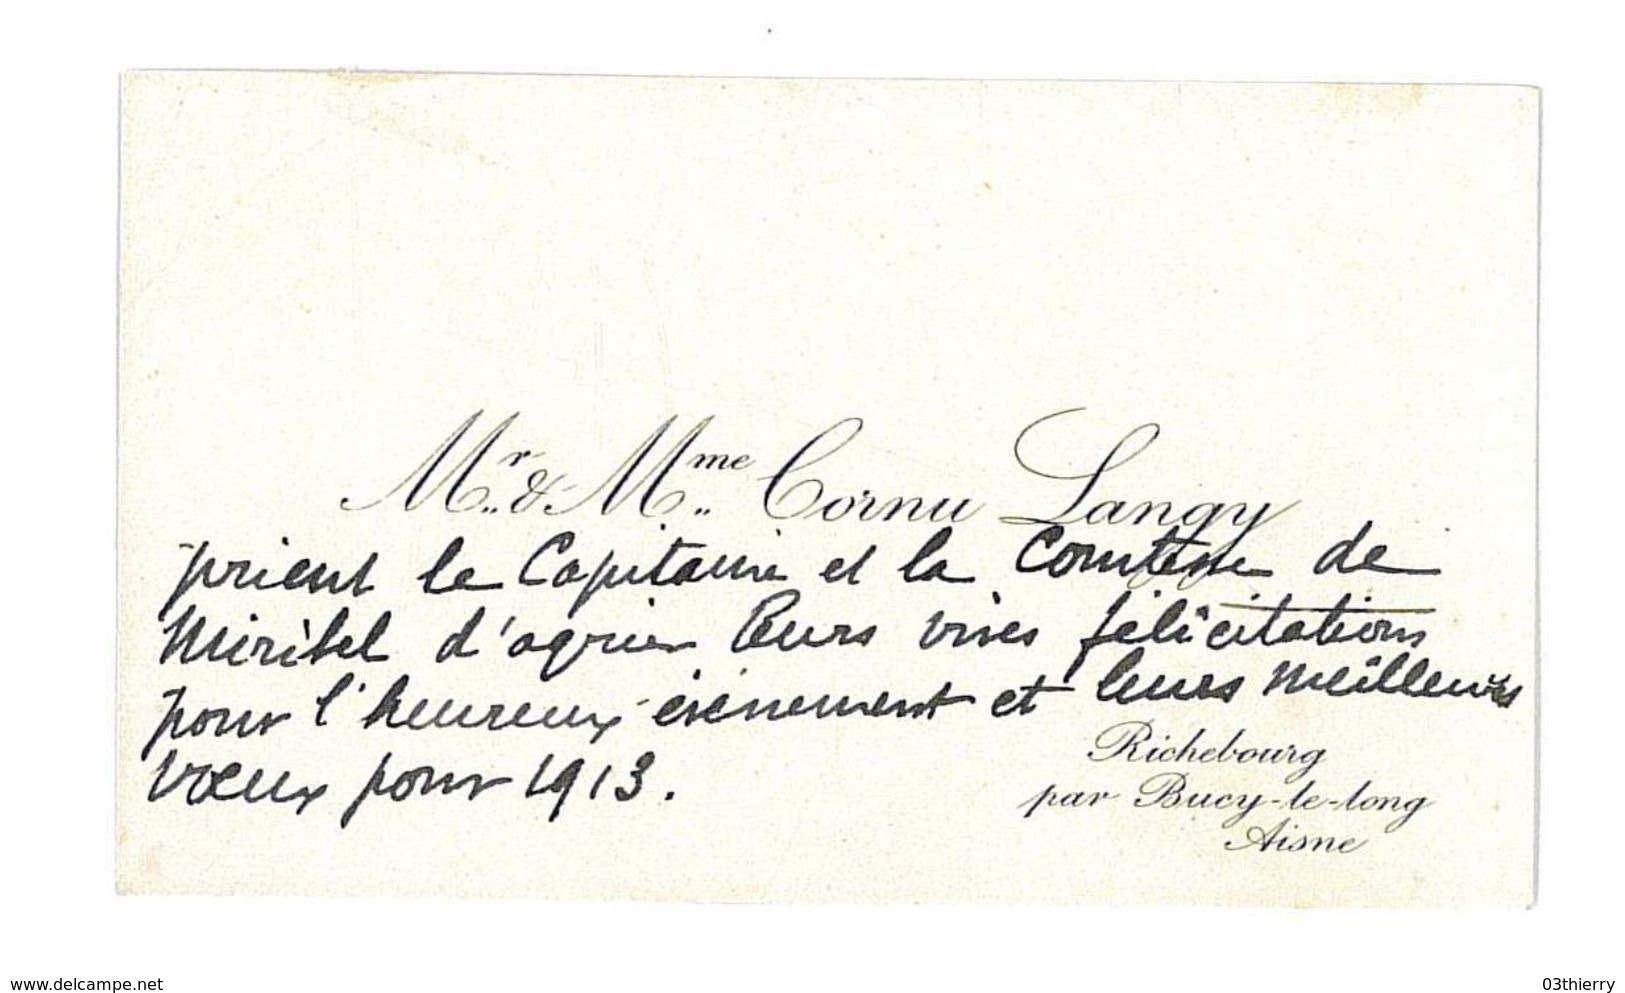 Mr. & Mme. Cornu Langy
prient le Capitaine et la Comtesse de
Miribel d'agréer leurs vives félicitations
pour l'heureux événement et leurs meilleurs
vœux pour 1913.
Richebourg
par Bucy-le-long
Aisne
www.delcampe.net
03thierry